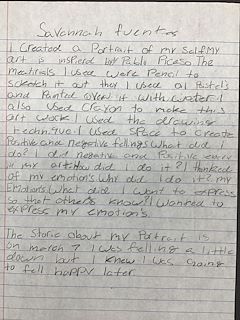 Savannah Fuentes
I Created a Portrait of my Self My
art is inspierd by Pablo Picaso The
meatirals I used were Pencil to
scketch it out then I used oil Pastels
and Painted over it With water I
also used Crayon to make this
art work I used the drawing
technique I used Space to Create
Positive and negetive fellings What did I
do? I did negetive and Positive
in my art How did I do it? I thinked
of my emotions Why did I do it? my
Emotions What did I want to express
so that others know? I wanted to
express my emotion's
The Storie about my Portrait is
on march 7 I was felling a little
down but I knew I was going
to fell happy later